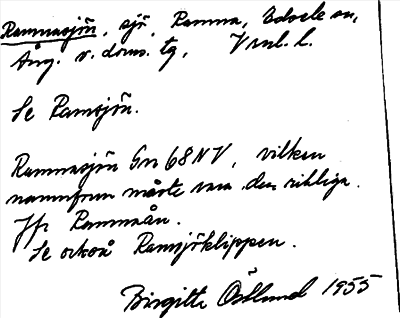 Ramnasjön, sjö, Ramna, Edsele sn,
Ång. v. doms. tg, Vnl. l.
Se Ramsjön.
Ramnasjön Gn 68 NV, vilken
namnform måste vara den riktiga.
Jfr Ramnaån.
Se också Ramsjöklippen.
Birgitta Östlund 1955